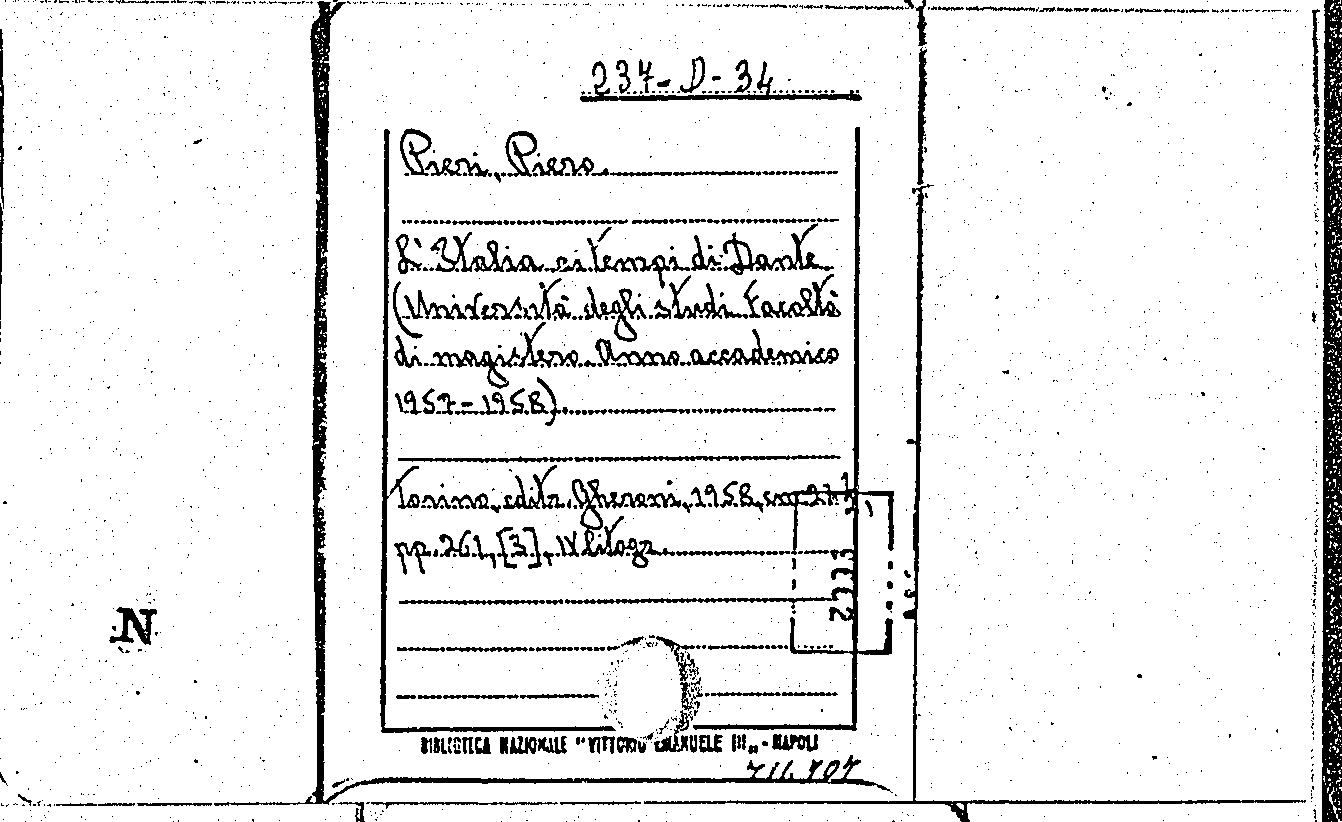 237-D-34
Pieri, Piero.
L'Italia ai tempi di Dante
(Università degli studi. Facoltà
di magistero. Anno accademico
1957-1958).
Torino, editr. Gheroni, 1958, cm. 27.
pp. 261, [3], IV litogr.
N
BIBLIOTECA NAZIONALE "VITTORIO EMANUELE III„ - NAPOLI
711.707